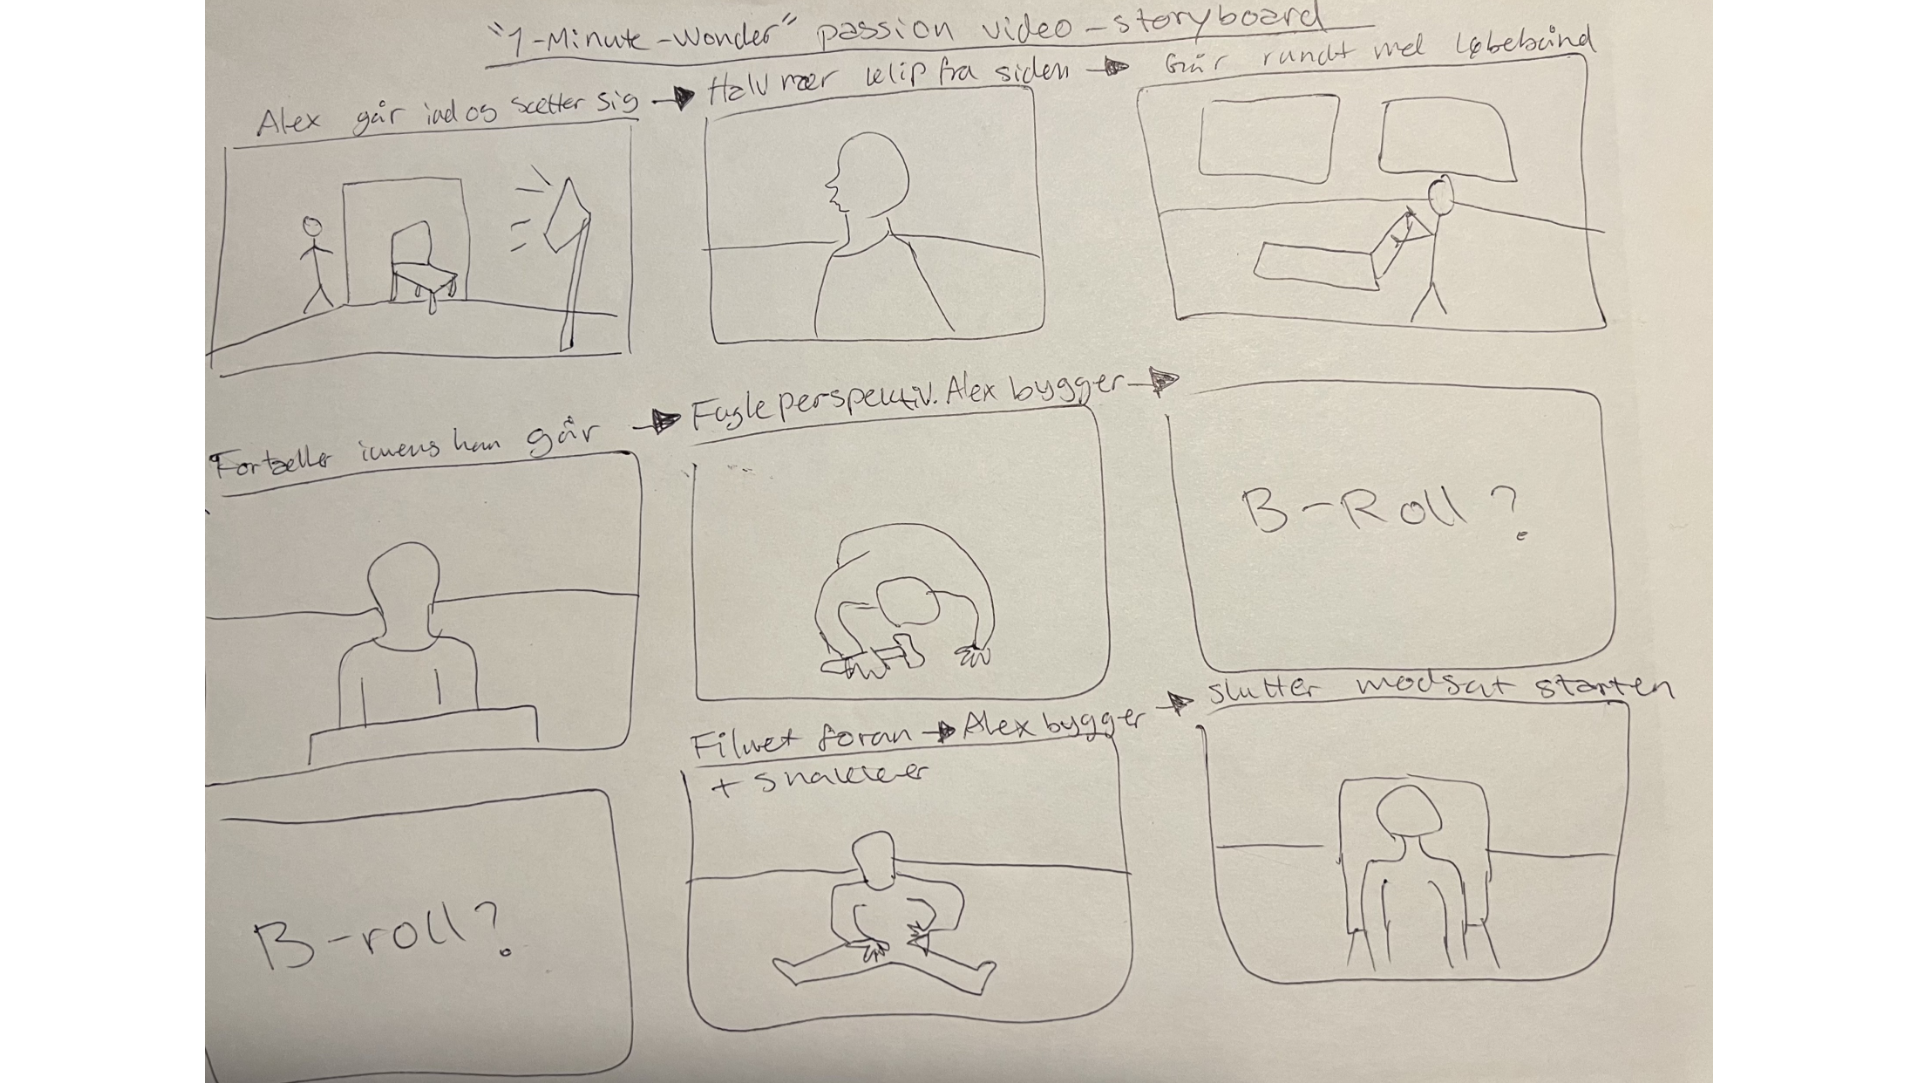 "1-Minute-Wonder" passion video - storyboard
Alex går ind og sætter sig → Halv nær klip fra siden → Går rundt med løbebånd
Fortæller imens han går → Fugleperspektiv. Alex bygger →
B-Roll?
Filmet foran → Alex bygger → slutter modsat starten
+ snakker
B-roll?